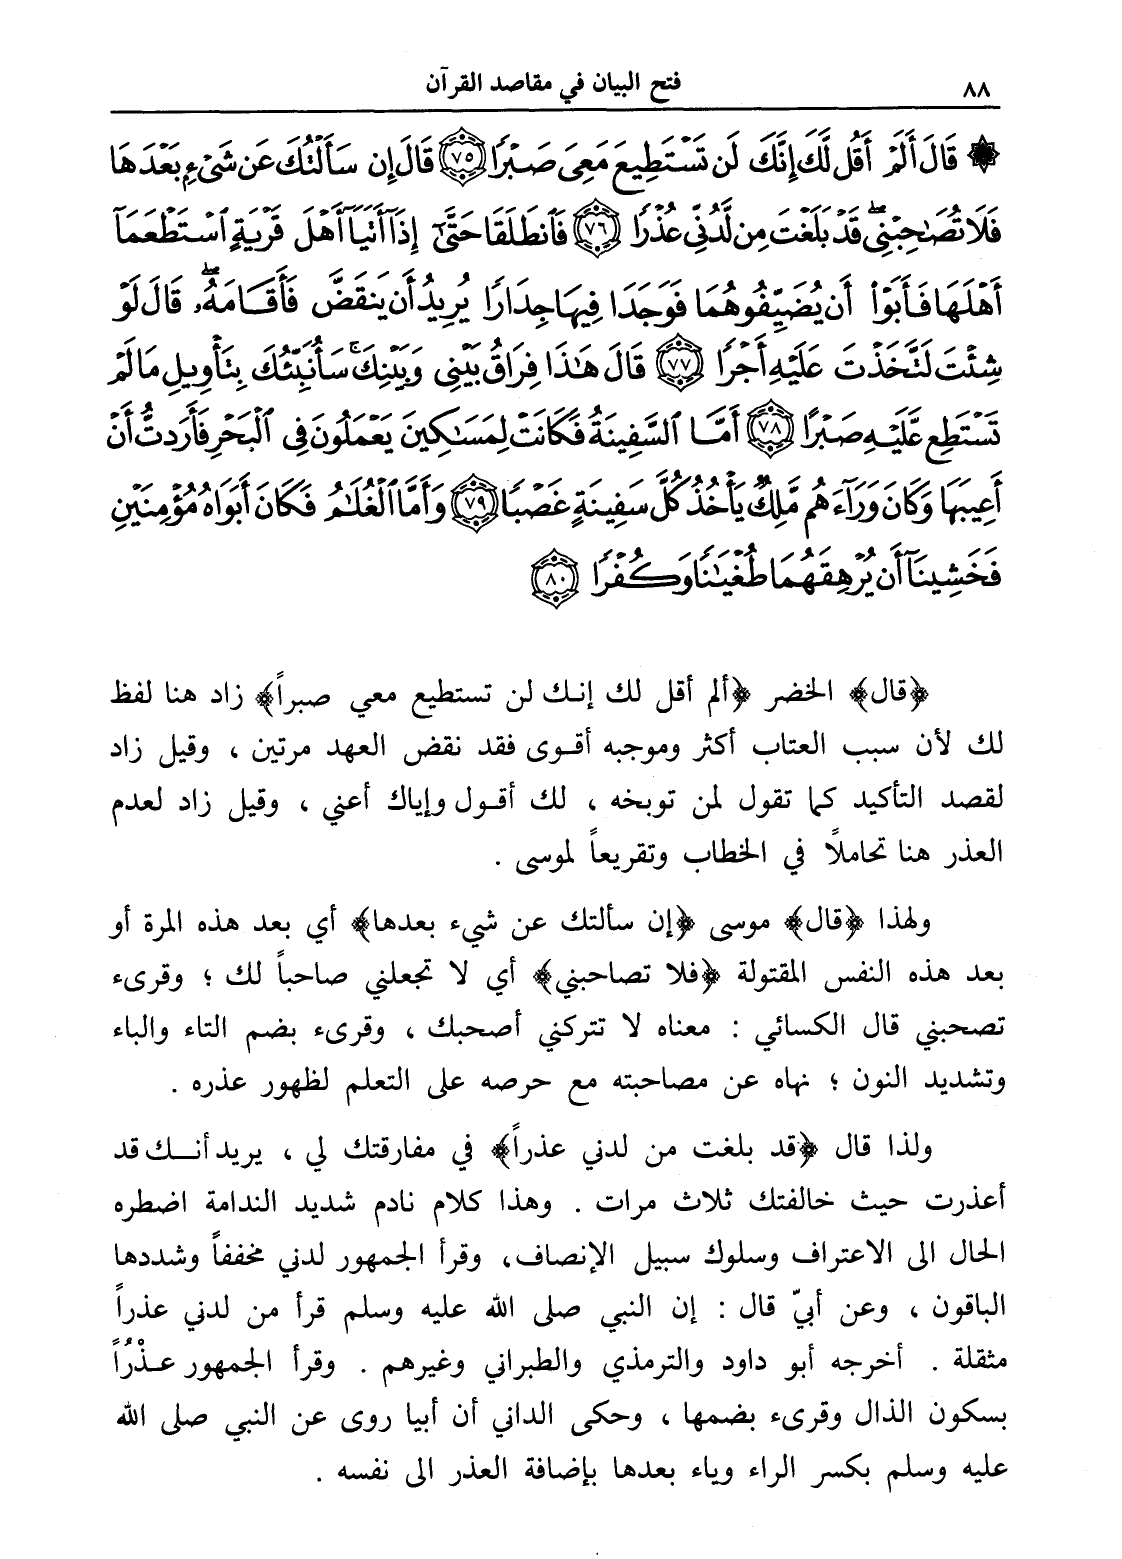 ٨٨ فتح البيان في مقاصد القرآن
۞ قَالَ أَلَمْ أَقُل لَّكَ إِنَّكَ لَن تَسْتَطِيعَ مَعِىَ صَبْرًا ٧٥ قَالَ إِن سَأَلْتُكَ عَن شَىْءٍۭ بَعْدَهَا
فَلَا تُصَٰحِبْنِى ۖ قَدْ بَلَغْتَ مِن لَّدُنِّى عُذْرًا ٧٦ فَٱنطَلَقَا حَتَّىٰٓ إِذَآ أَتَيَآ أَهْلَ قَرْيَةٍ ٱسْتَطْعَمَآ
أَهْلَهَا فَأَبَوْا۟ أَن يُضَيِّفُوهُمَا فَوَجَدَا فِيهَا جِدَارًا يُرِيدُ أَن يَنقَضَّ فَأَقَامَهُۥ ۖ قَالَ لَوْ
شِئْتَ لَتَّخَذْتَ عَلَيْهِ أَجْرًا ٧٧ قَالَ هَٰذَا فِرَاقُ بَيْنِى وَبَيْنِكَ ۚ سَأُنَبِّئُكَ بِتَأْوِيلِ مَا لَمْ
تَسْتَطِع عَّلَيْهِ صَبْرًا ٧٨ أَمَّا ٱلسَّفِينَةُ فَكَانَتْ لِمَسَٰكِينَ يَعْمَلُونَ فِى ٱلْبَحْرِ فَأَرَدتُّ أَنْ
أَعِيبَهَا وَكَانَ وَرَآءَهُم مَّلِكٌ يَأْخُذُ كُلَّ سَفِينَةٍ غَصْبًا ٧٩ وَأَمَّا ٱلْغُلَٰمُ فَكَانَ أَبَوَاهُ مُؤْمِنَيْنِ
فَخَشِينَآ أَن يُرْهِقَهُمَا طُغْيَٰنًا وَكُفْرًا ٨٠
﴿قال﴾ الخضر ﴿ألم أقل لك إنك لن تستطيع معي صبراً﴾ زاد هنا لفظ
لك لأن سبب العتاب أكثر وموجبه أقوى فقد نقض العهد مرتين ، وقيل زاد
لقصد التأكيد كما تقول لمن توبخه ، لك أقول وإياك أعني ، وقيل زاد لعدم
العذر هنا تحاملاً في الخطاب وتقريعاً لموسى .
ولهذا ﴿قال﴾ موسى ﴿إن سألتك عن شيء بعدها﴾ أي بعد هذه المرة أو
بعد هذه النفس المقتولة ﴿فلا تصاحبني﴾ أي لا تجعلني صاحباً لك ؛ وقرىء
تصحبني قال الكسائي : معناه لا تتركني أصحبك ، وقرىء بضم التاء والباء
وتشديد النون ؛ نهاه عن مصاحبته مع حرصه على التعلم لظهور عذره .
ولذا قال ﴿قد بلغت من لدني عذراً﴾ في مفارقتك لي ، يريد أنك قد
أعذرت حيث خالفتك ثلاث مرات . وهذا كلام نادم شديد الندامة اضطره
الحال الى الاعتراف وسلوك سبيل الإنصاف، وقرأ الجمهور لدني مخففاً وشددها
الباقون ، وعن أبيّ قال : إن النبي صلى الله عليه وسلم قرأ من لدني عذراً
مثقلة . أخرجه أبو داود والترمذي والطبراني وغيرهم . وقرأ الجمهور عذْرُاً
بسكون الذال وقرىء بضمها ، وحكى الداني أن أبيا روى عن النبي صلى الله
عليه وسلم بكسر الراء وياء بعدها بإضافة العذر الى نفسه .